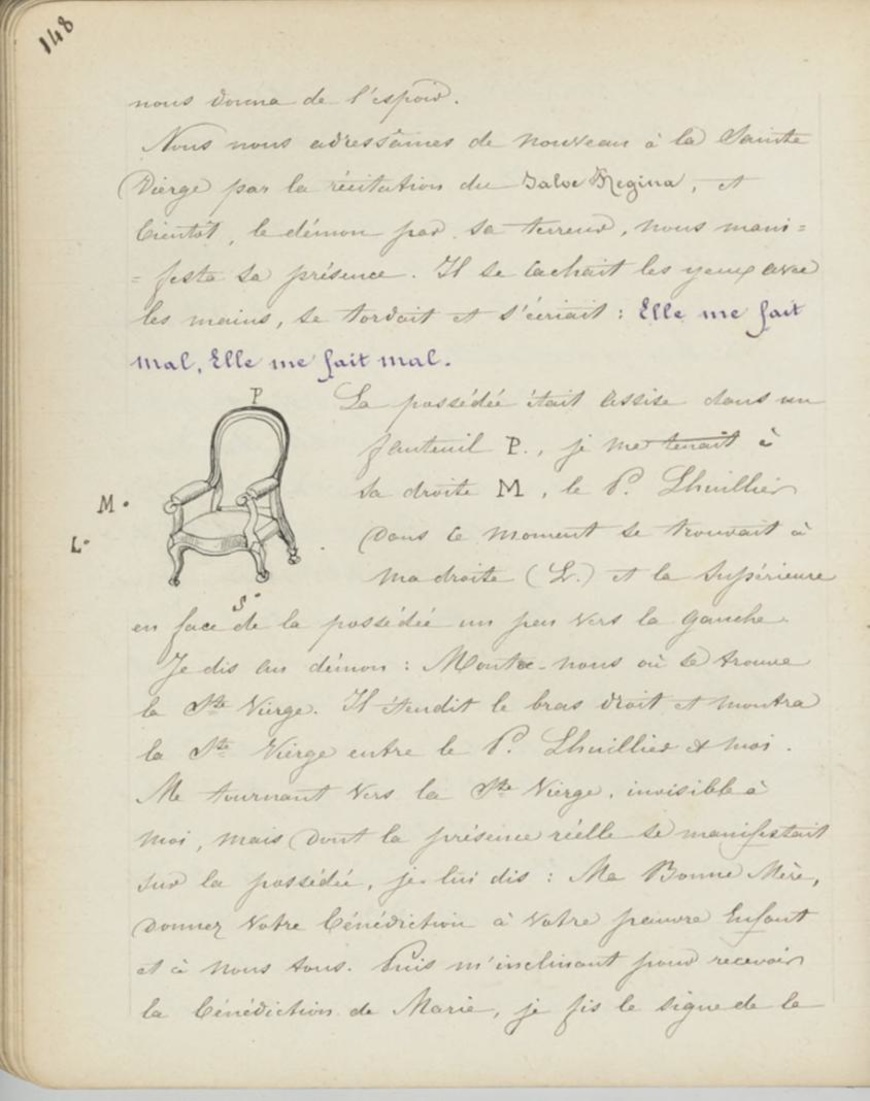 148
nous donna de l'espoir.
Nous nous adressâmes de nouveau à la Sainte
Vierge par la récitation du Salve Regina, et
bientôt, le démon par sa terreur, nous mani=
=festa sa présence. Il se cachait les yeux avec
les mains, se tordait et s'écriait : Elle me fait
mal, Elle me fait mal.
P
La possédée était assise dans un
fauteuil P., je me tenait à
M.
sa droite M, le P. Lhuillier
L.
dans ce moment se trouvait à
ma droite (L.) et la Supérieure
S.
en face de la possédée un peu vers la gauche.
Je dis au démon : Montre-nous où se trouve
la Ste Vierge. Il étendit le bras droit et montra
la Ste Vierge entre le P. Lhuillier et moi.
Me tournant vers la Ste Vierge, invisible à
moi, mais dont la présence réelle se manifestait
sur la possédée, je lui dis : Ma Bonne Mère,
donnez votre bénédiction à votre pauvre Enfant
et à nous tous. Puis m'inclinant pour recevoir
la bénédiction de Marie, je fis le signe de la